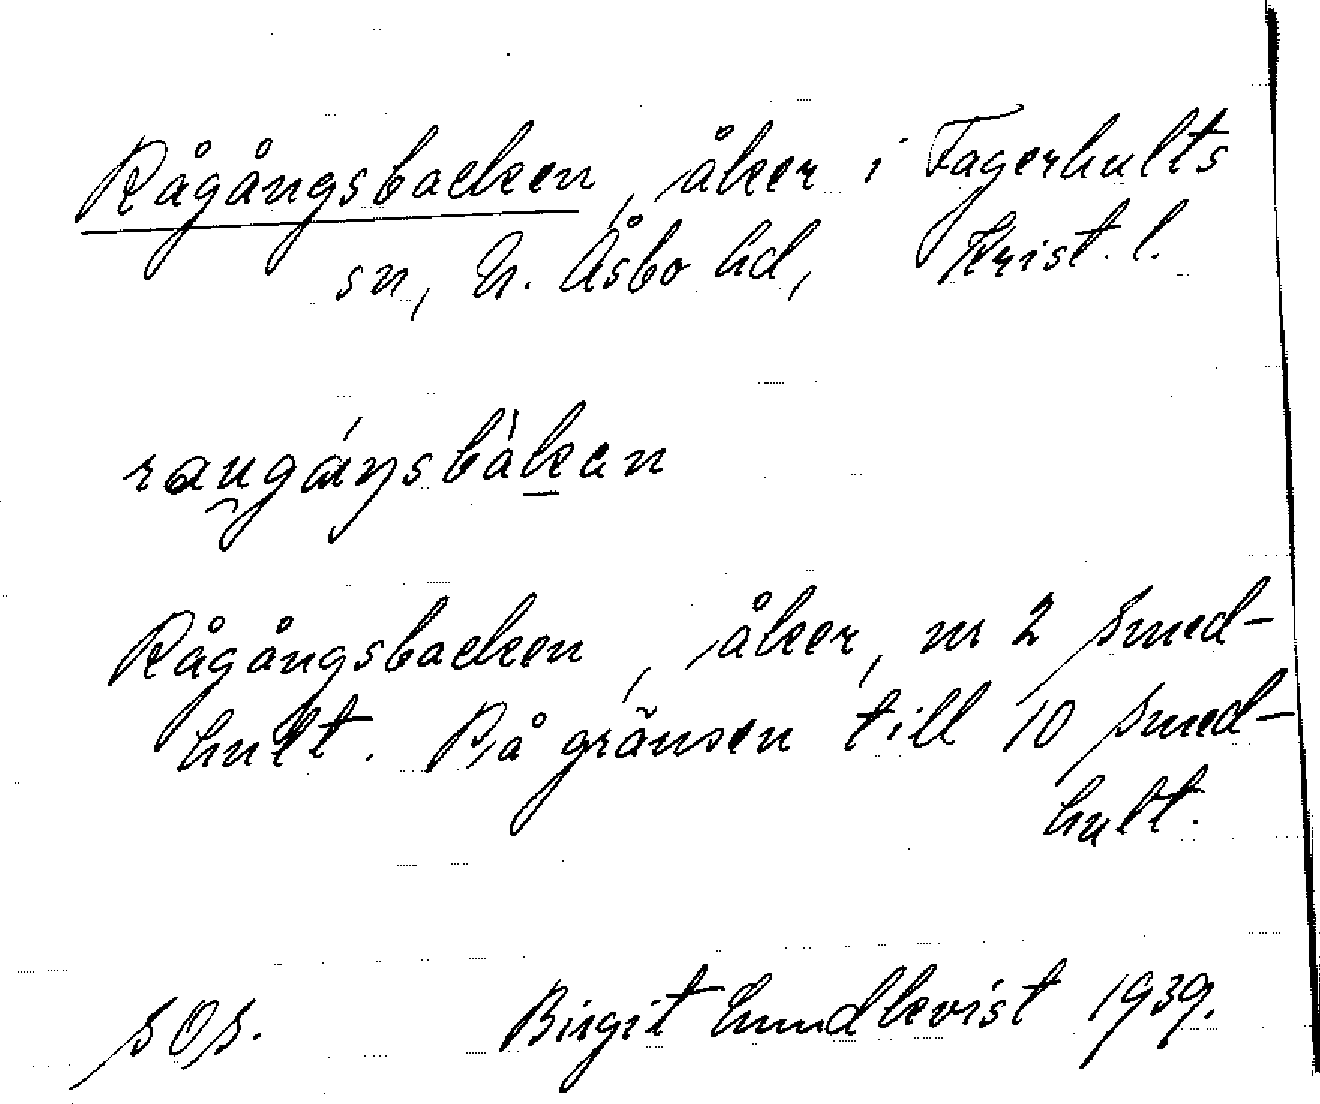 Rågångsbacken, åker i Fagerhults
sn, N. Åsbo hd, Krist. l.
Rågångsbacken, åker, nr 2 Smed-
hult. På gränsen till 10 Smed-
hult.
SOS. Birgit Lundkvist 1939.